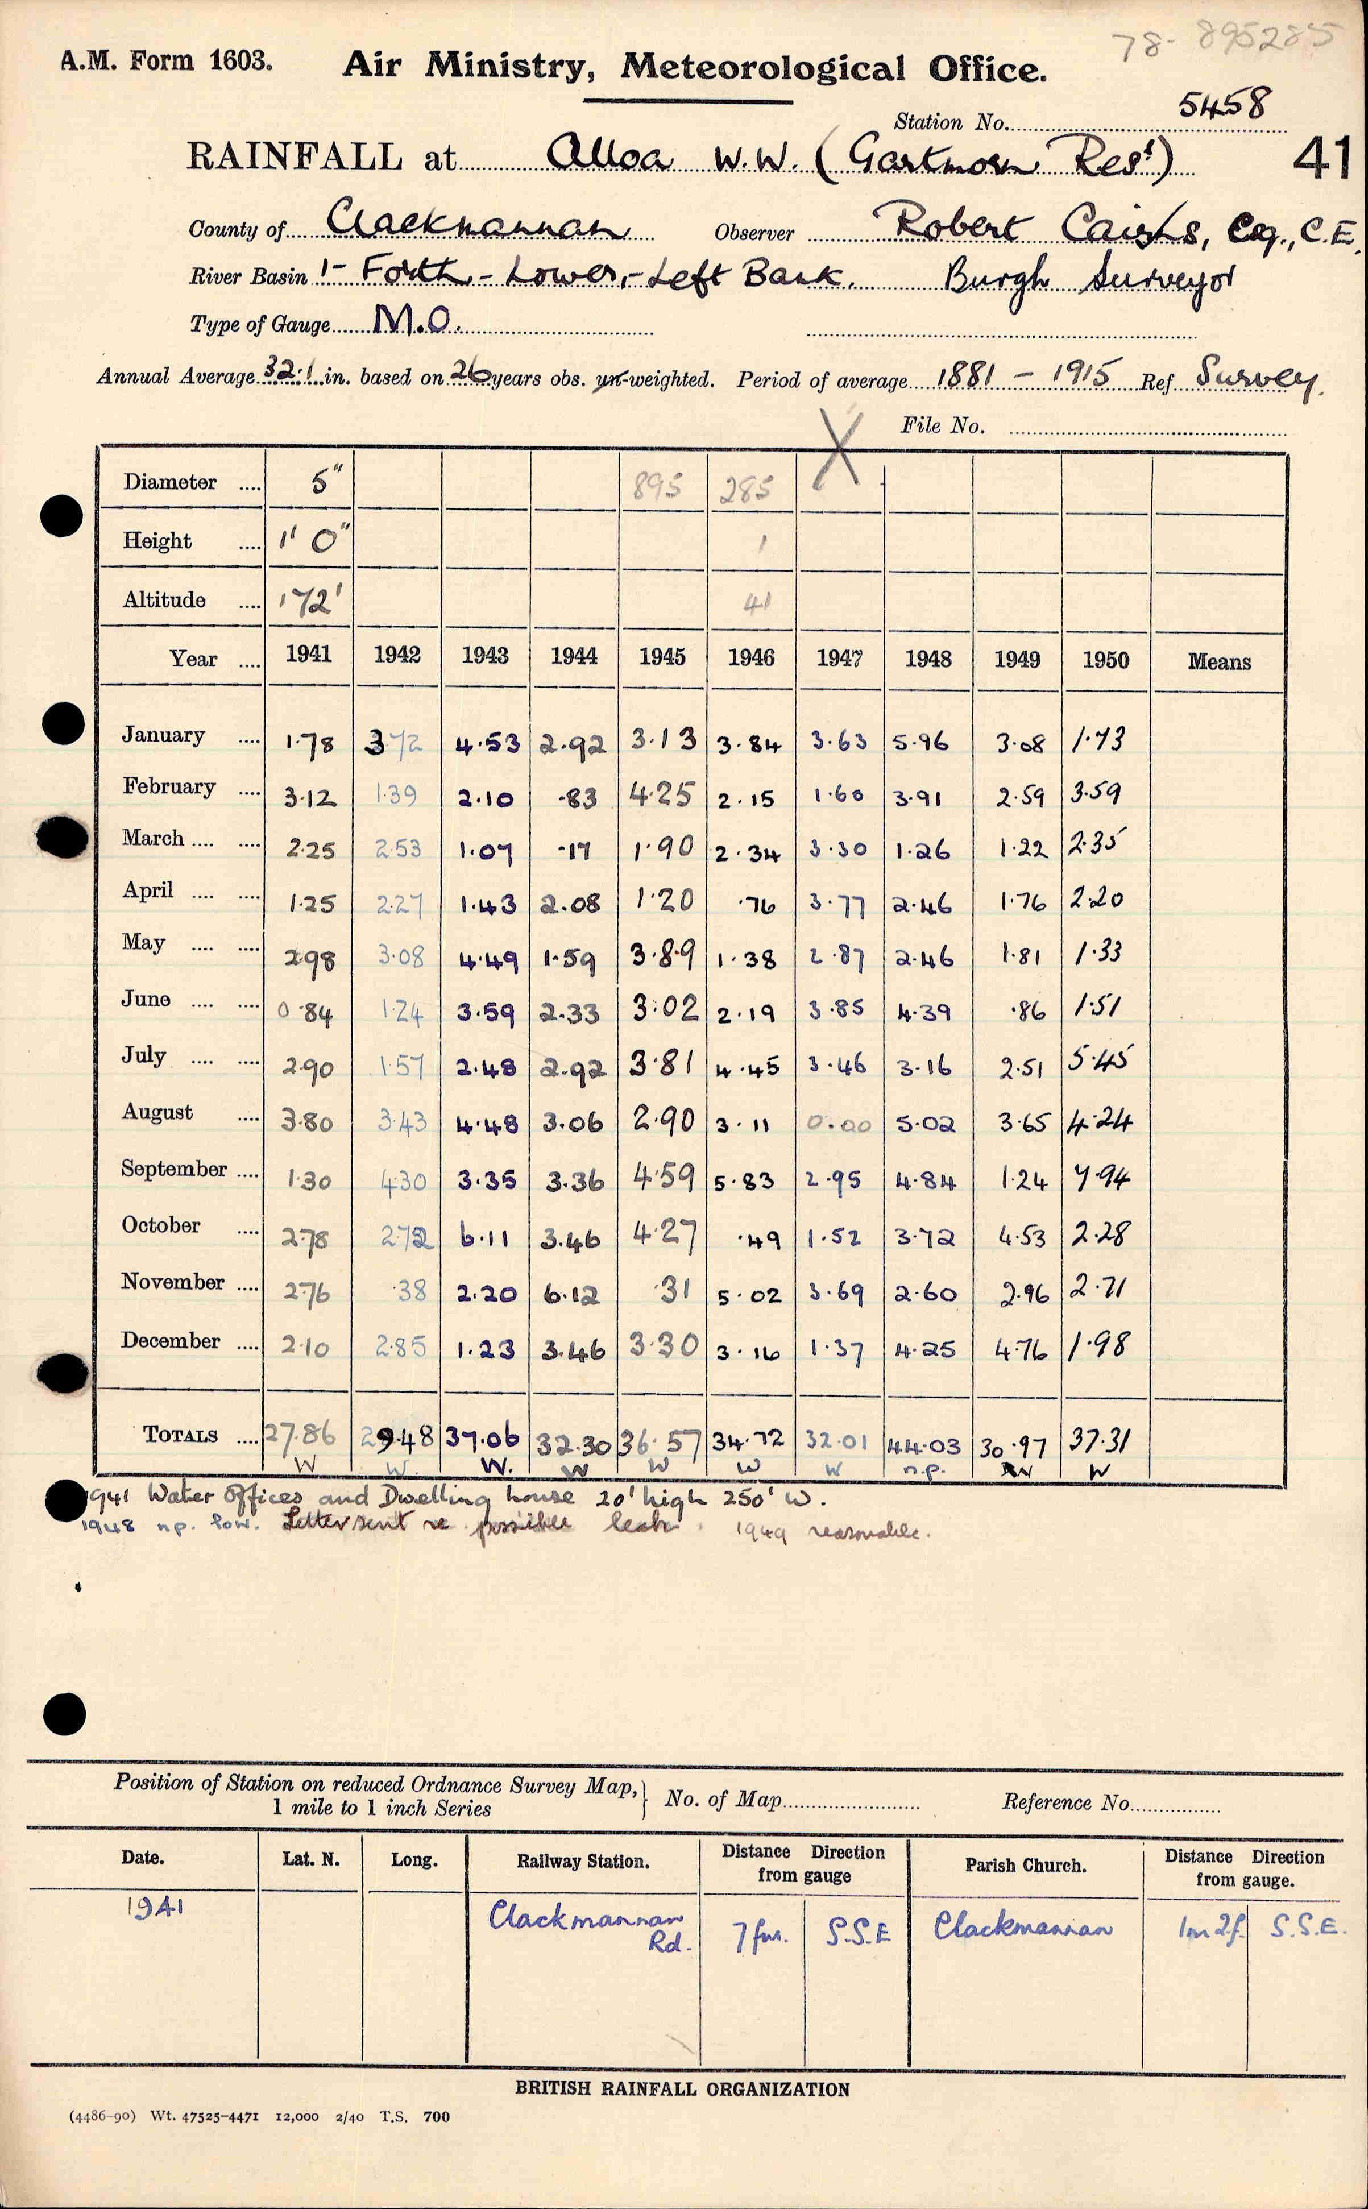 78- 895285
A.M. Form 1603. Air Ministry, Meteorological Office.
Station No. 5458
RAINFALL at Alloa W.W. (Gartmorn Resr) 41
County of Clackmannan Observer Robert Cairns, Esq., C.E.
River Basin 1- Forth - Lower, - Left Bank. Burgh Surveyor
Type of Gauge M.O.
Annual Average 32.1 in. based on 26 years obs. un-weighted. Period of average 1881 - 1915 Ref Survey.
File No. X
Diameter .... 5" 895 285
Height .... 1' 0" 1
Altitude .... 172' 41
Year .... 1941 1942 1943 1944 1945 1946 1947 1948 1949 1950 Means
January .... 1.78 3.72 4.53 2.92 3.13 3.84 3.63 5.96 3.08 1.73
February .... 3.12 1.39 2.10 .83 4.25 2.15 1.60 3.91 2.59 3.59
March .... .... 2.25 2.53 1.07 .17 1.90 2.34 3.30 1.26 1.22 2.35
April .... .... 1.25 2.27 1.43 2.08 1.20 .76 3.77 2.46 1.76 2.20
May .... .... 2.98 3.08 4.49 1.59 3.89 1.38 2.87 2.46 1.81 1.33
June .... .... 0.84 1.24 3.59 2.33 3.02 2.19 3.85 4.39 .86 1.51
July .... .... 2.90 1.57 2.48 2.92 3.81 4.45 3.46 3.16 2.51 5.45
August .... 3.80 3.43 4.48 3.06 2.90 3.11 0.00 5.02 3.65 4.24
September .... 1.30 4.30 3.35 3.36 4.59 5.83 2.95 4.84 1.24 7.94
October .... 2.78 2.72 6.11 3.46 4.27 .49 1.52 3.72 4.53 2.28
November .... 2.76 .38 2.20 6.12 .31 5.02 3.69 2.60 2.96 2.71
December .... 2.10 2.85 1.23 3.46 3.30 3.16 1.37 4.25 4.76 1.98
TOTALS .... 27.86 29.48 37.06 32.30 36.57 34.72 32.01 44.03 30.97 37.31
W W. W. W W W W n.p. W W
1941 Water Offices and Dwelling house 20' high 250' W.
1948 n.p. low. Letter sent re possible leak. 1949 reasonable.
Position of Station on reduced Ordnance Survey Map, } No. of Map Reference No.
1 mile to 1 inch Series
Date. Lat. N. Long. Railway Station. Distance Direction from gauge Parish Church. Distance Direction from gauge.
1941 Clackmannan Rd. 7 fur. S.S.E Clackmannan 1m 2f. S.S.E.
BRITISH RAINFALL ORGANIZATION
(4486-90) Wt. 47525-4471 12,000 2/40 T.S. 700